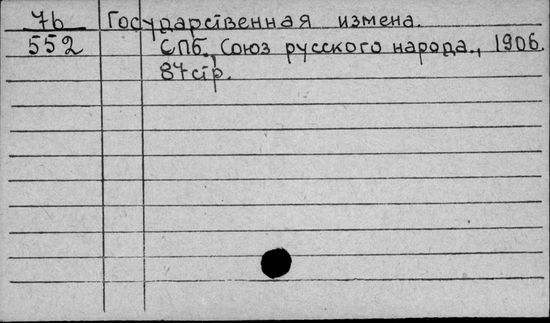 7б Государственная измена.
552 СПб., Союз русского народа., 1906.
87 стр.